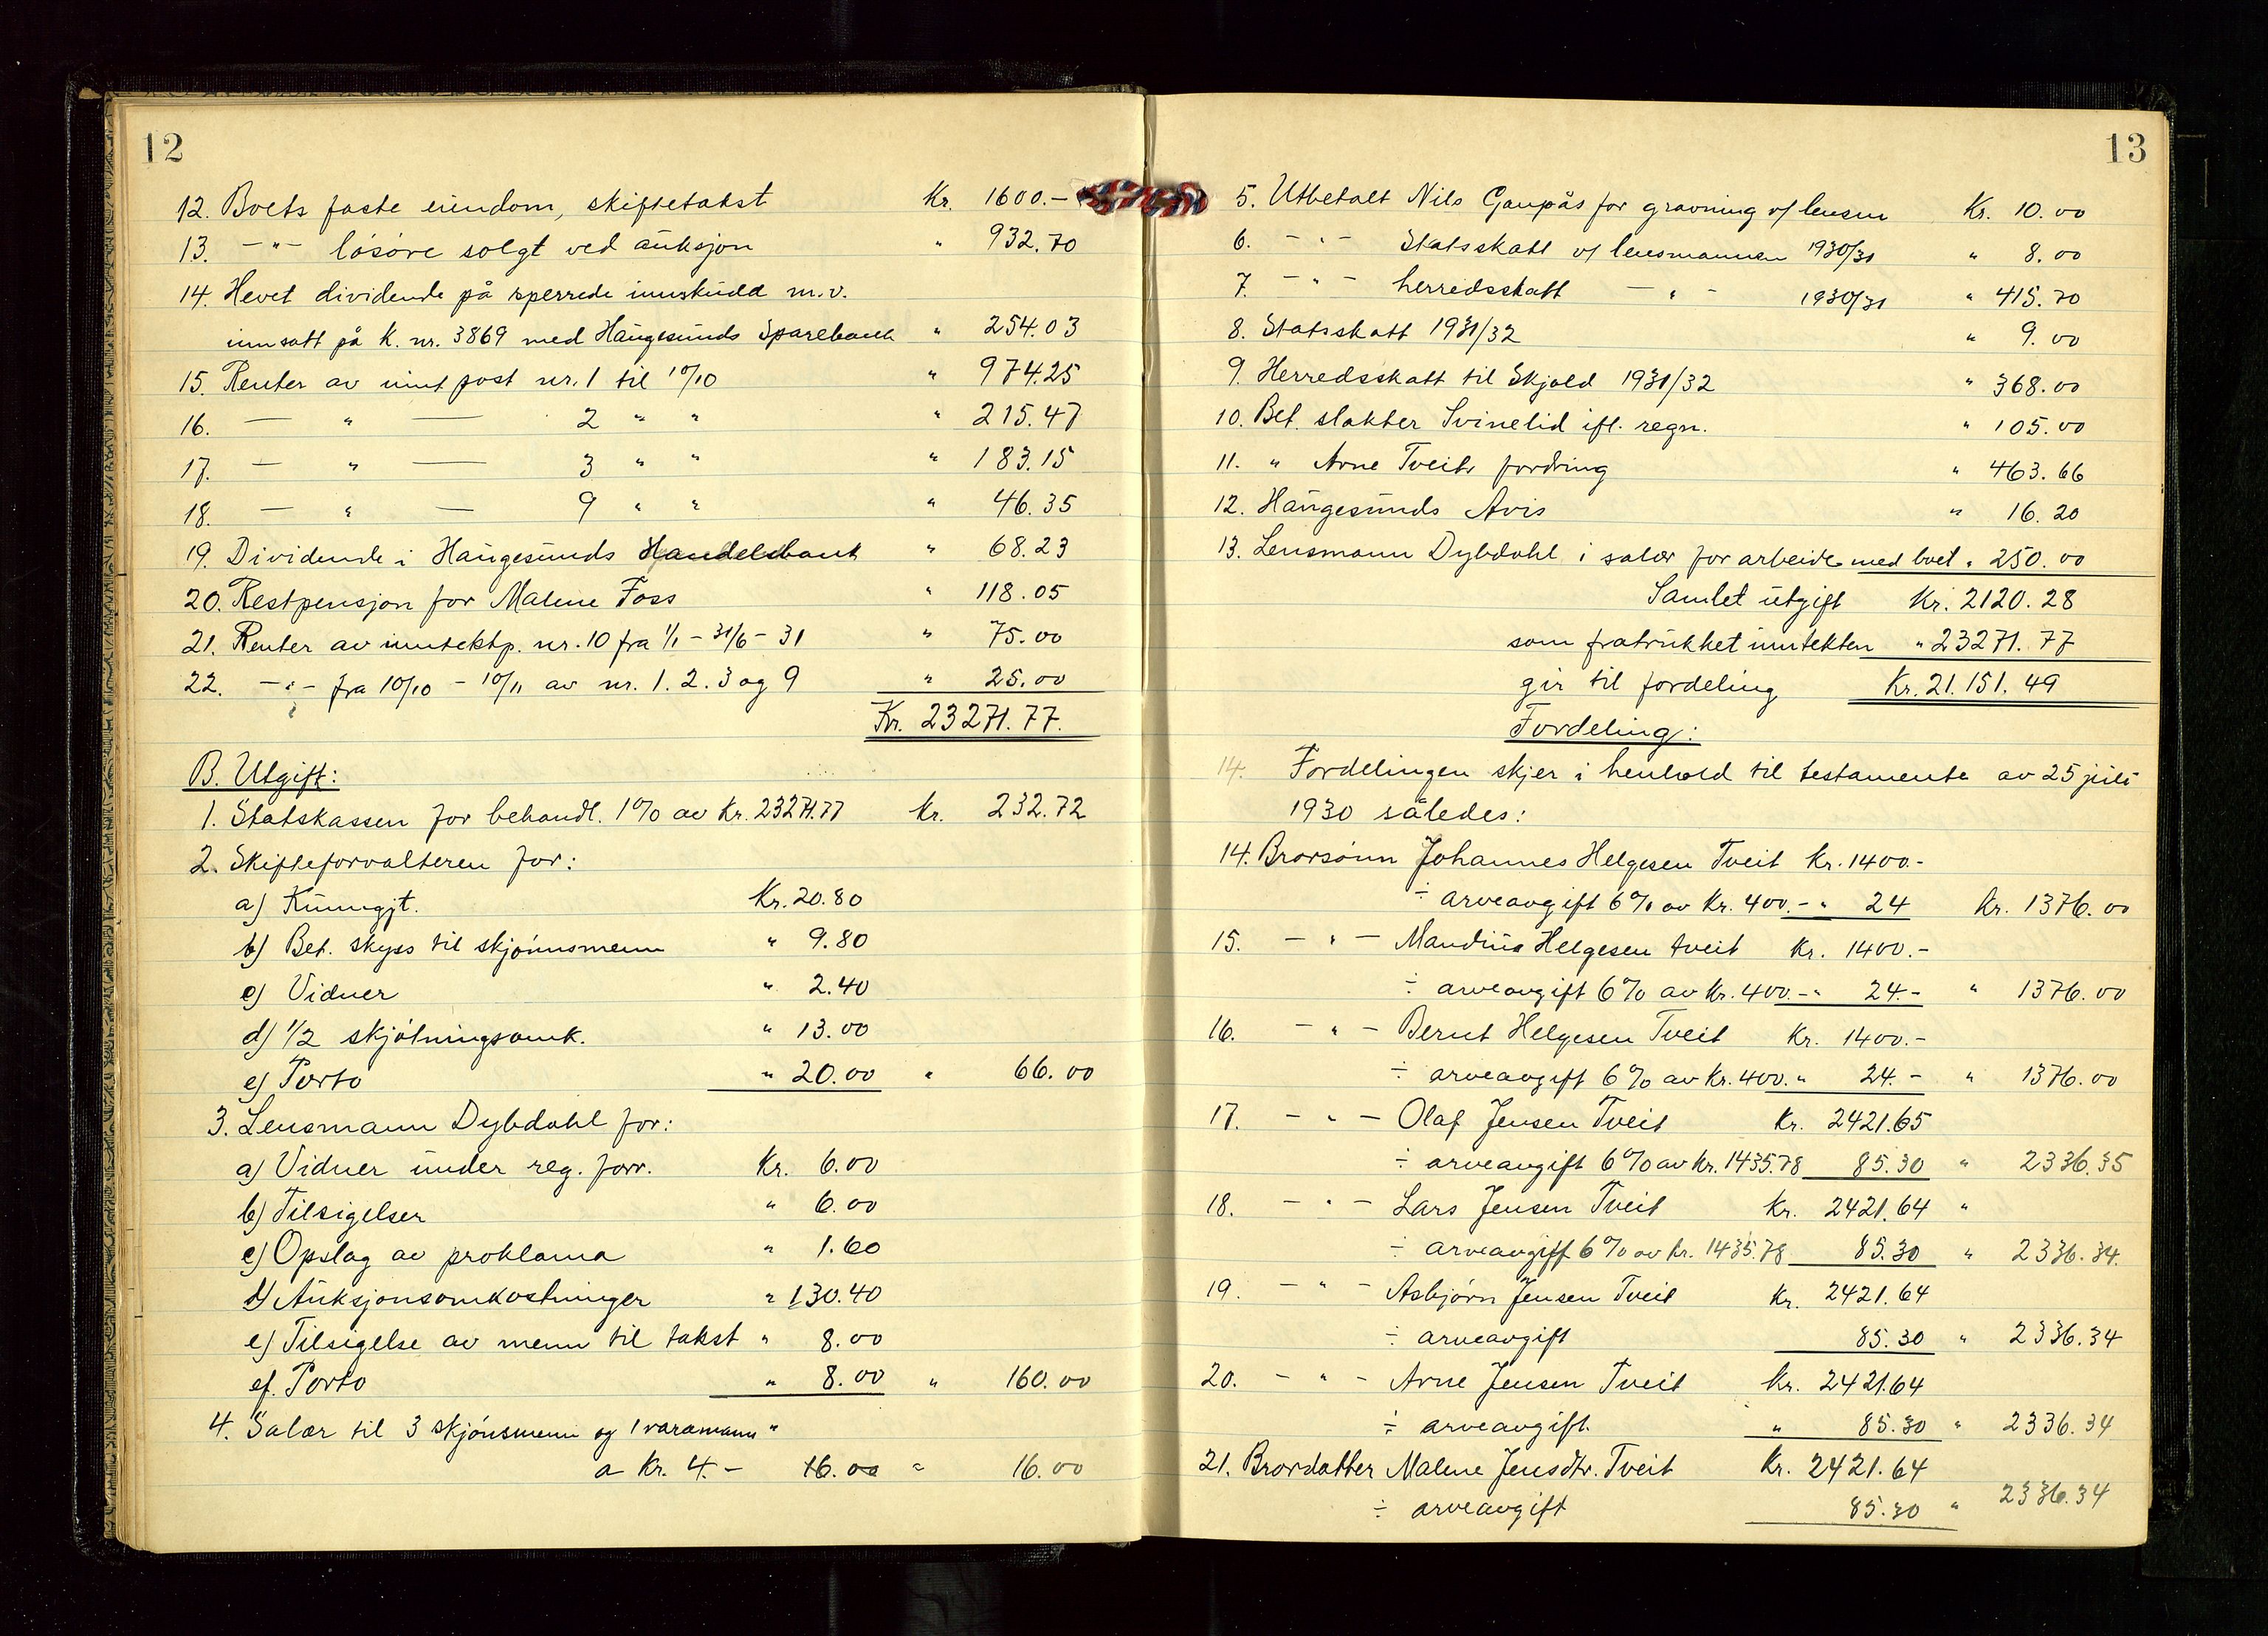 12
12. Boets faste eiendom, skiftetakst Kr. 1600.-
13. -"- løsøre solgt ved auksjon " 932.70
14. Hevet dividende på sperrede innskudd m.v.
innsatt på K. nr. 3869 med Haugesunds Sparebank " 254.03
15. Renter av innt. post nr. 1 til 10/10 " 974.25
16. — " — 2 " " " 215.47
17. — " — 3 " " " 183.15
18. — " — 9 " " " 46.35
19. Dividende i Haugesunds Handelsbank " 68.23
20. Restpensjon for Malene Foss " 118.05
21. Renter av inntektsp. nr. 10 fra 1/1 - 31/6 - 31 " 75.00
22. -"- fra 10/10 - 10/11 av nr. 1. 2. 3 og 9 " 25.00
Kr. 23271.77.
B. Utgift:
1. Statskassen for behandl. 1% av Kr. 23271.77 Kr. 232.72
2. Skifteforvalteren for:
a) Kunngjt. Kr. 20.80
b) Bet. skyss til skjønnsmenn " 9.80
c) Vidner " 2.40
d) 1/2 skjøtningsomk. " 13.00
e) Porto " 20.00 " 66.00
3. Lensmann Dybdahl for:
a) Vidner under reg. forr. Kr. 6.00
b) Tilsigelser " 6.00
c) Opslag av proklama " 1.60
d) Auksjonsomkostninger " 130.40
e) Tilsigelse av menn til takst " 8.00
ef. Porto " 8.00 " 160.00
4. Salær til 3 skjønsmenn og 1 varamann "
a Kr. 4.- 16.00 " 16.00
13
5. Utbetalt Nils Gaupås for gravning v/ lensm Kr. 10.00
6. -"- Statsskatt v/ lensmannen 1930/31 " 8.00
7. -"- herredsskatt -"- 1930/31 " 415.70
8. Statsskatt 1931/32 " 9.00
9. Herredsskatt til Skjold 1931/32 " 368.00
10. Bet. slakter Svinelid ifl. regn. " 105.00
11. " Arne Tveits fordring " 463.66
12. Haugesunds Avis " 16.20
13. Lensmann Dybdahl i salær for arbeide med boet " 250.00
Samlet utgift Kr. 2120.28
som fratrukket inntekten " 23271.77
gir til fordeling Kr. 21.151.49
Fordeling:
14. Fordelingen skjer i henhold til testamente av 25 juli
1930 således:
14. Brorsønn Johannes Helgesen Tveit Kr. 1400.-
÷ arveavgift 6% av Kr. 400.- " 24 Kr. 1376.00
15. -"- Mandius Helgesen Tveit Kr. 1400.-
÷ arveavgift 6% av Kr. 400.- " 24.- " 1376.00
16. -"- Bernt Helgesen Tveit Kr. 1400.-
÷ arveavgift 6% av Kr. 400. " 24.- " 1376.00
17. -"- Olaf Jensen Tveit Kr. 2421.65
÷ arveavgift 6% av Kr. 1435.78 85.30 " 2336.35
18. -"- Lars Jensen Tveit Kr. 2421.64 "
÷ arveavgift 6% av Kr. 1435.78 85.30 " 2336.34.
19. -"- Asbjørn Jensen Tveit Kr. 2421.64
÷ arveavgift 85.30 " 2336.34
20. -"- Arne Jensen Tveit Kr. 2421.64
÷ arveavgift. " 85.30 " 2336.34
21. Brordatter Malene Jensdtr. Tveit Kr. 2421.64
÷ arveavgift 85.30 " 2336.34